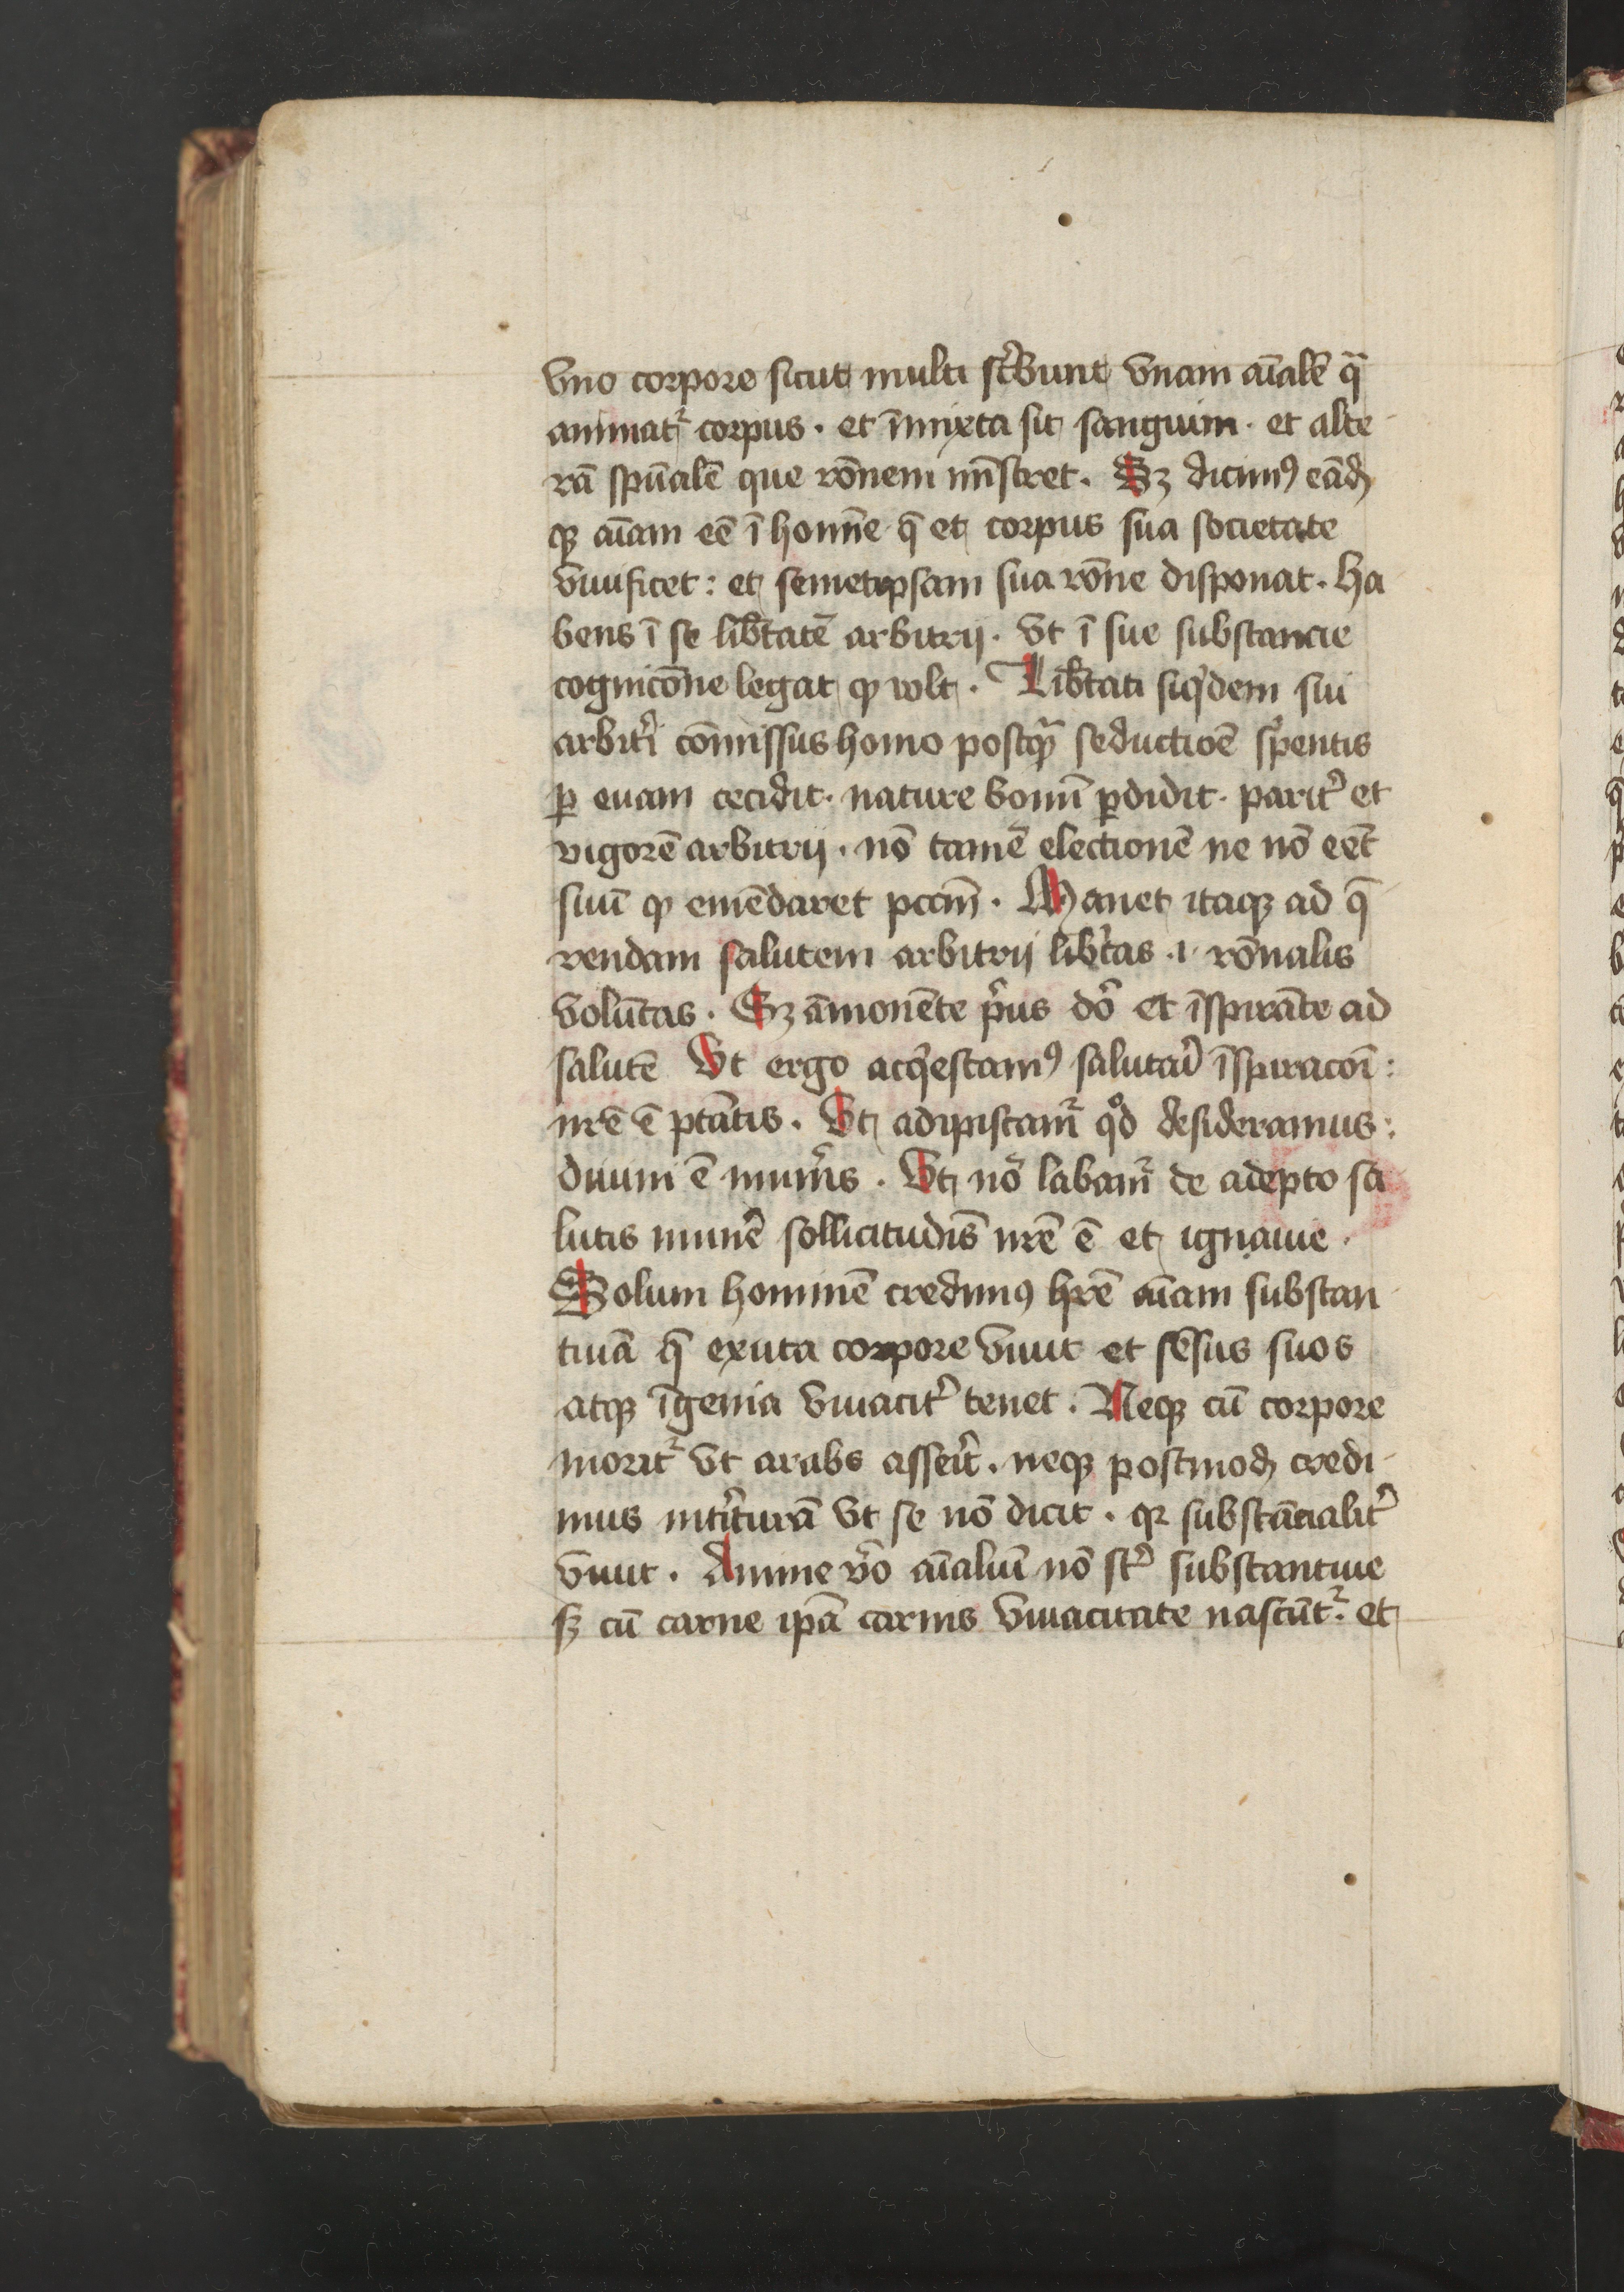 vno corpore sicut multi sc͛bunt vnam aīalē q̄
animat᷑ corpus · et īmixta sit sanguini · et alte
rā spūalē que rōnem mīstret . Sꝫ dicim⁹ eādꝫ
ꝙ aīam eē ī homīne q̄ et corpus sua societate
viuificet : et semetipsam sua rōne disponat . Ha
bens ī se lib̄tatē arbitrij . vt ī sue substancie
cognicōne legat ꝙ volt . Lib̄tati siq̇dem sui
arbit͛i cōmissus homo postꝙ̄ seductioē s͛pentis
ꝑ euam cecidit . nature bonū ꝑdidit . parit͛ et
vigorē arbitrij . nō tamē electionē ne nō eēt
suū ꝙ emēdaret pccm̄ . Manet itaqꝫ ad q̄
rendam salutem arbitrij lib͛tas .i. rōnalis
volūtas . Sꝫ āmonēte p͛us dō et īspirāte ad
salutē Vt ergo acq̇escam⁹ salutaī īspiracōi :
nrē ē ptātis . Vt adipiscam᷑ qͦd desideramus :
diuini ē mun͛is . Vt nō labam᷑ de adepto sa
lutis munē sollicitudīs nrē ē et ignauie .
Solum hominē credim⁹ hrē aīam substan
tiuā q̄ exuta corpore viuit et sēsus suos
atqꝫ īgenia viuacit͛ tenet . Neqꝫ cū corpore
morit᷑ vt arabs asseīt . neqꝫ postmodꝫ credi
mus int͛iturā vt se nō dicit . qꝛ substācialit͛
viuit . Anime v͛o aīaliū nō st͛ substantiue
sꝫ cū carne ipā carnis viuacitate nascūt᷑ . et